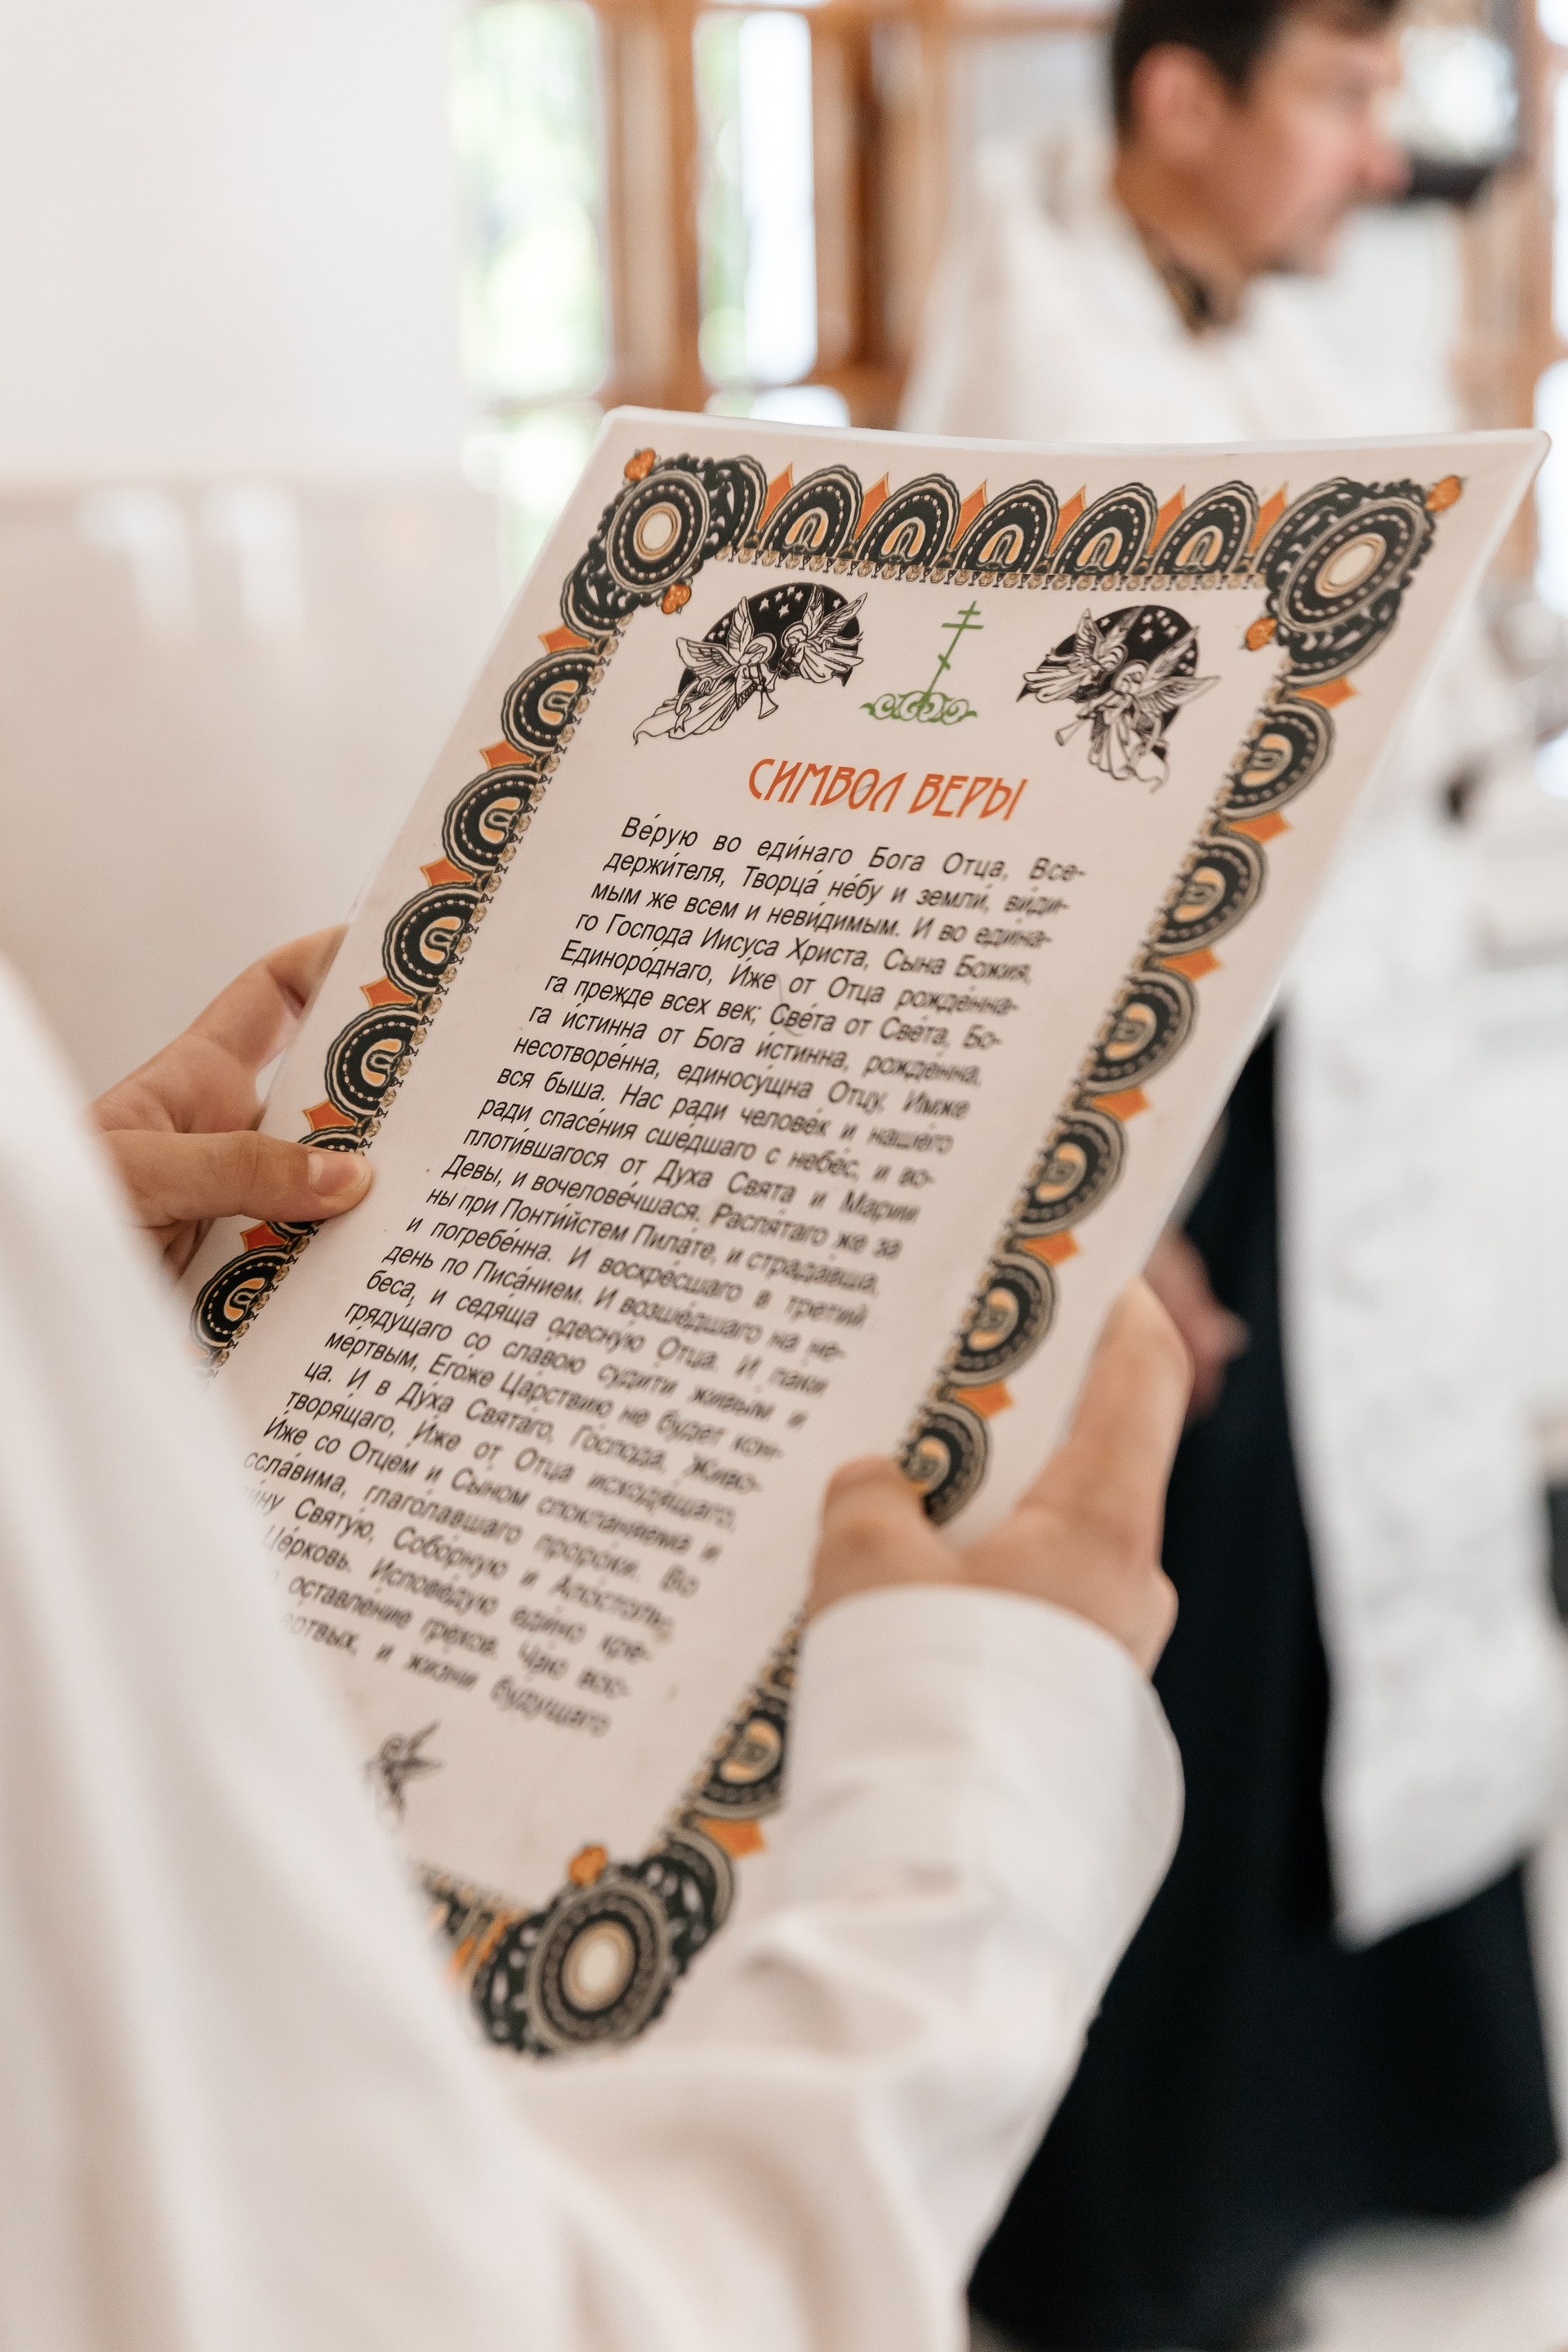 СИМВОЛ ВЕРЫ
Ве́рую во еди́наго Бога Отца, Все-
держи́теля, Творца́ не́бу и земли́, ви́ди-
мым же всем и неви́димым. И во едина-
го Господа Иисуса Христа, Сына Божия,
Единоро́днаго, И́же от Отца рожде́нна-
га прежде всех век; Све́та от Све́та, Бо-
га истинна от Бога и́стинна, рожде́нна,
несотворе́нна, единосу́щна Отцу, Имже
вся быша. Нас ради челове́к и наше́го
ради спасе́ния сше́дшаго с небе́с, и во-
плоти́вшагося от Духа Свята и Марии
Девы, и вочелове́чшася. Распя́таго же за
ны при Понти́йстем Пила́те, и страда́вша,
и погребе́нна. И воскре́сшаго в третий
день по Писа́нием. И возше́дшаго на не-
беса, и седя́ща одесну́ю Отца. И паки
гряду́щаго со сла́вою суди́ти живы́м и
ме́ртвым, Его́же Ца́рствию не будет кон-
ца. И в Ду́ха Свята́го, Го́спода, Живо-
творя́щаго, И́же от Отца исходя́щаго,
И́же со Отце́м и Сы́ном спокланяема и
ссла́вима, глаго́лавшаго проро́ки. Во
Святу́ю, Собо́рную и Апостоль-
Це́рковь. Испове́дую еди́но кре-
оставле́ние грехов. Ча́ю вос-
и жизни будущаго